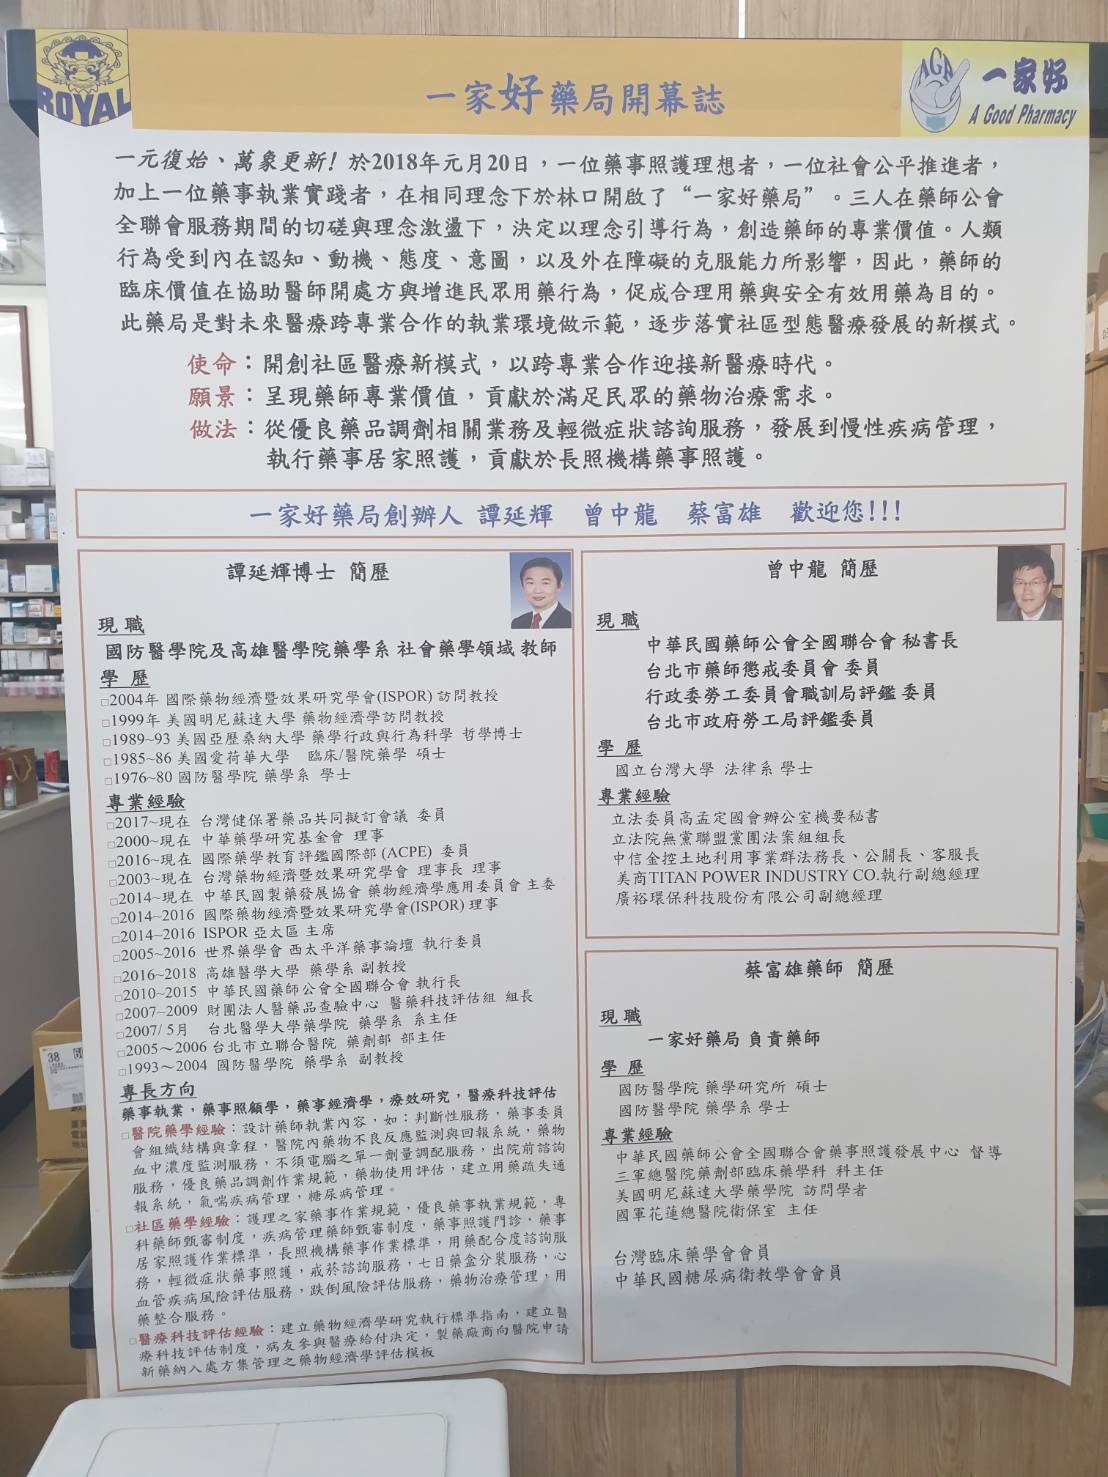 ROYAL
一家好藥局開幕誌
AGP
一家好
A Good Pharmacy
一元復始、萬象更新!於2018年元月20日,一位藥事照護理想者,一位社會公平推進者,
加上一位藥事執業實踐者,在相同理念下於林口開啟了“一家好藥局”。三人在藥師公會
全聯會服務期間的切磋與理念激盪下,決定以理念引導行為,創造藥師的專業價值。人類
行為受到內在認知、動機、態度、意圖,以及外在障礙的克服能力所影響,因此,藥師的
臨床價值在協助醫師開處方與增進民眾用藥行為,促成合理用藥與安全有效用藥為目的。
此藥局是對未來醫療跨專業合作的執業環境做示範,逐步落實社區型態醫療發展的新模式。
使命:開創社區醫療新模式,以跨專業合作迎接新醫療時代。
願景:呈現藥師專業價值,貢獻於滿足民眾的藥物治療需求。
做法:從優良藥品調劑相關業務及輕微症狀諮詢服務,發展到慢性疾病管理,
執行藥事居家照護,貢獻於長照機構藥事照護。
一家好藥局創辦人 譚延輝 曾中龍 蔡富雄 歡迎您!!!
譚延輝博士 簡歷
現職
國防醫學院及高雄醫學院藥學系 社會藥學領域 教師
學歷
□2004年 國際藥物經濟暨效果研究學會(ISPOR) 訪問教授
□1999年 美國明尼蘇達大學 藥物經濟學訪問教授
□1989~93 美國亞歷桑納大學 藥學行政與行為科學 哲學博士
□1985~86 美國愛荷華大學 臨床/醫院藥學 碩士
□1976~80 國防醫學院 藥學系 學士
專業經驗
□2017~現在 台灣健保署藥品共同擬訂會議 委員
□2000~現在 中華藥學研究基金會 理事
□2016~現在 國際藥學教育評鑑國際部 (ACPE) 委員
□2003~現在 台灣藥物經濟暨效果研究學會 理事長 理事
□2014~現在 中華民國製藥發展協會 藥物經濟學應用委員會 主委
□2014~2016 國際藥物經濟暨效果研究學會(ISPOR) 理事
□2014~2016 ISPOR 亞太區 主席
□2005~2016 世界藥學會 西太平洋藥事論壇 執行委員
□2016~2018 高雄醫學大學 藥學系 副教授
□2010~2015 中華民國藥師公會全國聯合會 執行長
□2007~2009 財團法人醫藥品查驗中心 醫藥科技評估組 組長
□2007/ 5月 台北醫學大學藥學院 藥學系 系主任
□2005～2006 台北市立聯合醫院 藥劑部 部主任
□1993～2004 國防醫學院 藥學系 副教授
專長方向
藥事執業,藥事照顧學,藥事經濟學,療效研究,醫療科技評估
□醫院藥學經驗:設計藥師執業內容,如:判斷性服務,藥事委員
會組織結構與章程,醫院內藥物不良反應監測與回報系統,藥物
血中濃度監測服務,不須電腦之單一劑量調配服務,出院前諮詢
服務,優良藥品調劑作業規範,藥物使用評估,建立用藥疏失通
報系統,氣喘疾病管理,糖尿病管理。
□社區藥學經驗:護理之家藥事作業規範,優良藥事執業規範,專
科藥師甄審制度,疾病管理藥師甄審制度,藥事照護門診,藥事
居家照護作業標準,長照機構藥事作業標準,用藥配合度諮詢服
務,輕微症狀藥事照護,戒菸諮詢服務,七日藥盒分裝服務,心
血管疾病風險評估服務,跌倒風險評估服務,藥物治療管理,用
藥整合服務。
□醫療科技評估經驗:建立藥物經濟學研究執行標準指南,建立醫
療科技評估制度,病友參與醫療給付決定,製藥廠商向醫院申請
新藥納入處方集管理之藥物經濟學評估模板
曾中龍 簡歷
現職
中華民國藥師公會全國聯合會 秘書長
台北市藥師懲戒委員會 委員
行政委勞工委員會職訓局評鑑 委員
台北市政府勞工局評鑑委員
學歷
國立台灣大學 法律系 學士
專業經驗
立法委員高孟定國會辦公室機要秘書
立法院無黨聯盟黨團法案組組長
中信金控土地利用事業群法務長、公關長、客服長
美商TITAN POWER INDUSTRY CO.執行副總經理
廣裕環保科技股份有限公司副總經理
蔡富雄藥師 簡歷
現職
一家好藥局 負責藥師
學歷
國防醫學院 藥學研究所 碩士
國防醫學院 藥學系 學士
專業經驗
中華民國藥師公會全國聯合會藥事照護發展中心 督導
三軍總醫院藥劑部臨床藥學科 科主任
美國明尼蘇達大學藥學院 訪問學者
國軍花蓮總醫院衛保室 主任
台灣臨床藥學會會員
中華民國糖尿病衛教學會會員
38